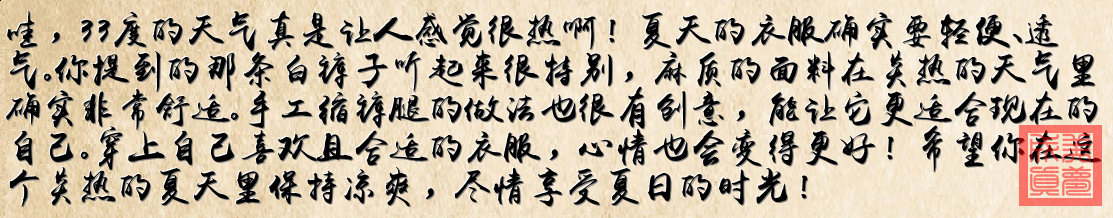 哇，33度的天气真是让人感觉很热啊！夏天的衣服确实要轻便、透
气。你提到的那条白裤子听起来很特别，麻质的面料在炎热的天气里
确实非常舒适。手工缩裤腿的做法也很有创意，能让它更适合现在的
自己。穿上自己喜欢且合适的衣服，心情也会变得更好！希望你在这
个炎热的夏天里保持凉爽，尽情享受夏日的时光！